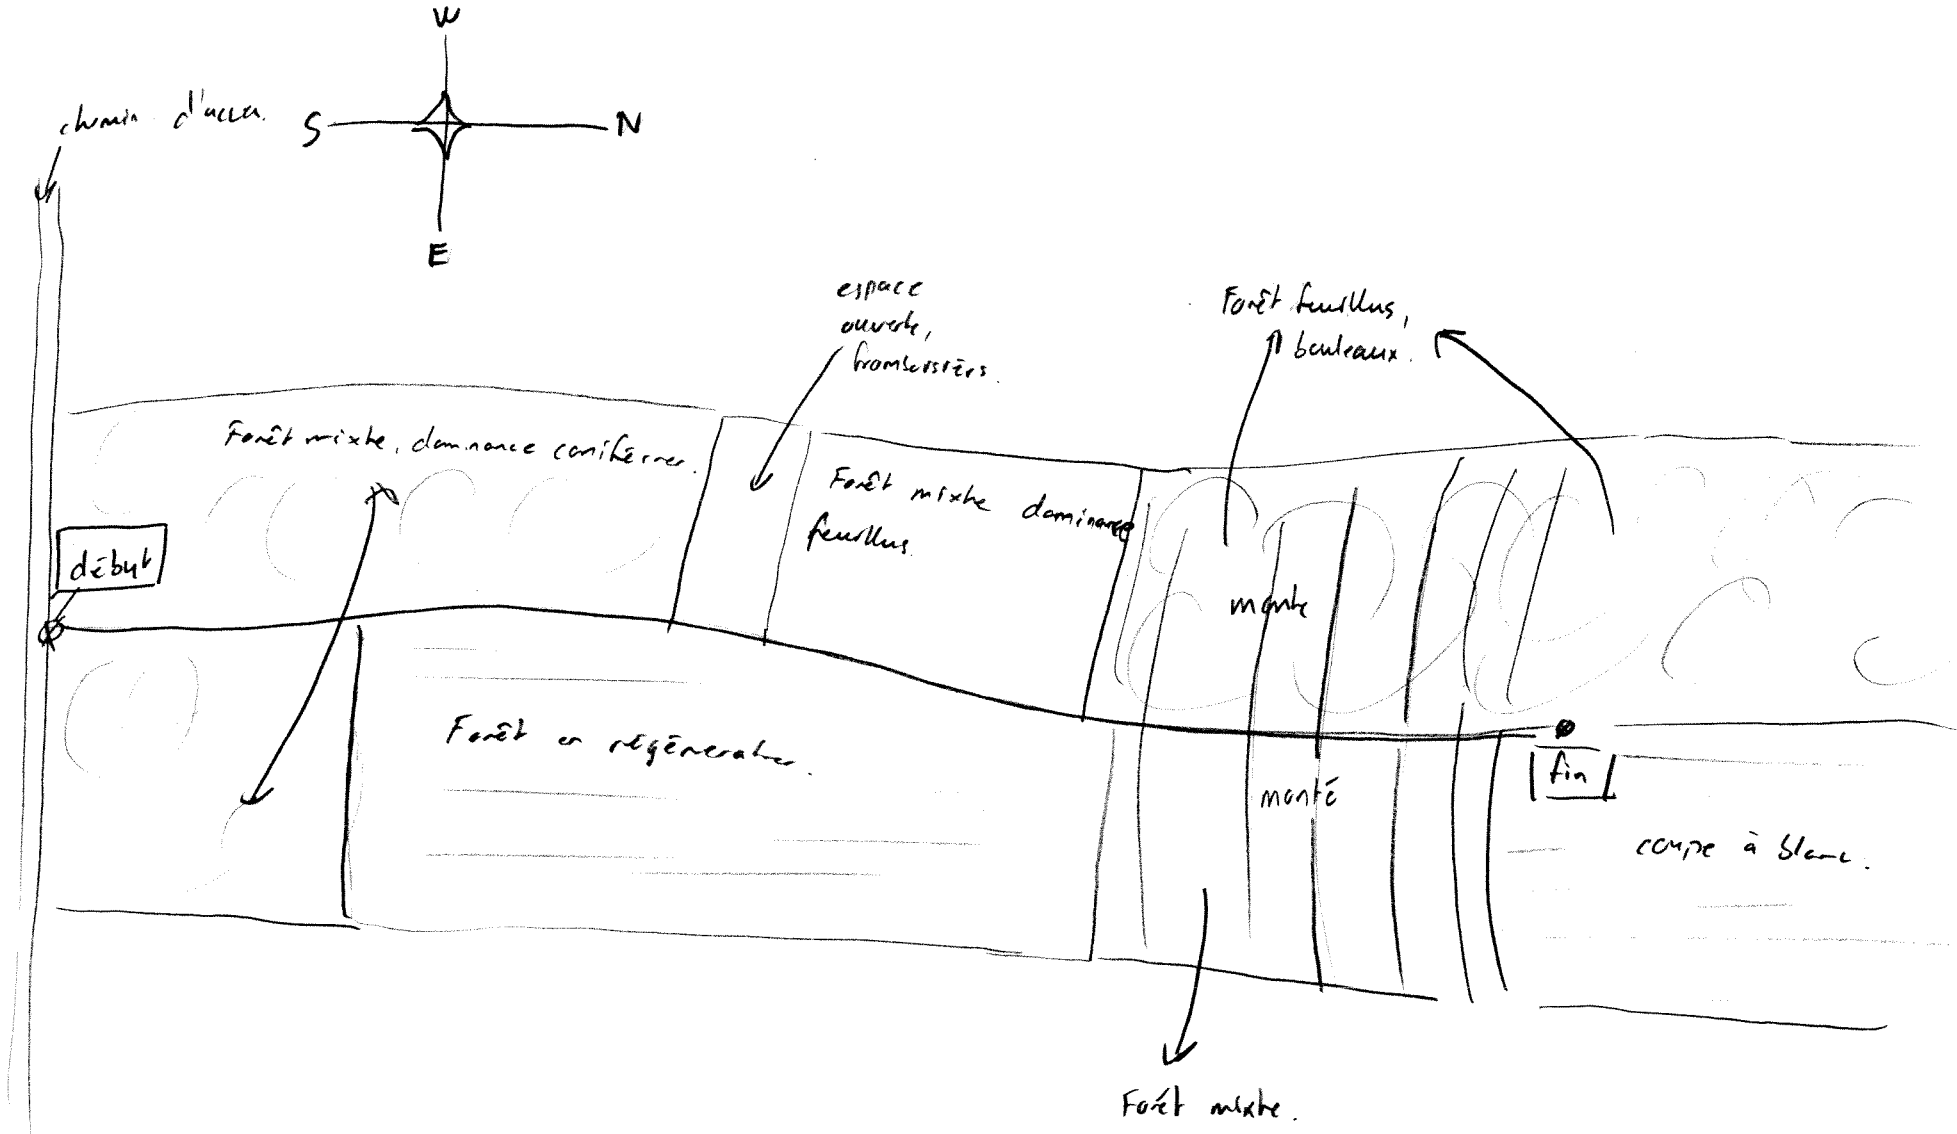 W
chemin d'accès.
S
N
E
espace
ouverte,
framboisiers.
Forêt feuillus,
bouleaux.
Forêt mixte, dominance conifères.
Forêt mixte dominance
feuillus.
début
monte
Forêt en régénération.
fin
monté
coupe à blanc.
Forêt mixte.